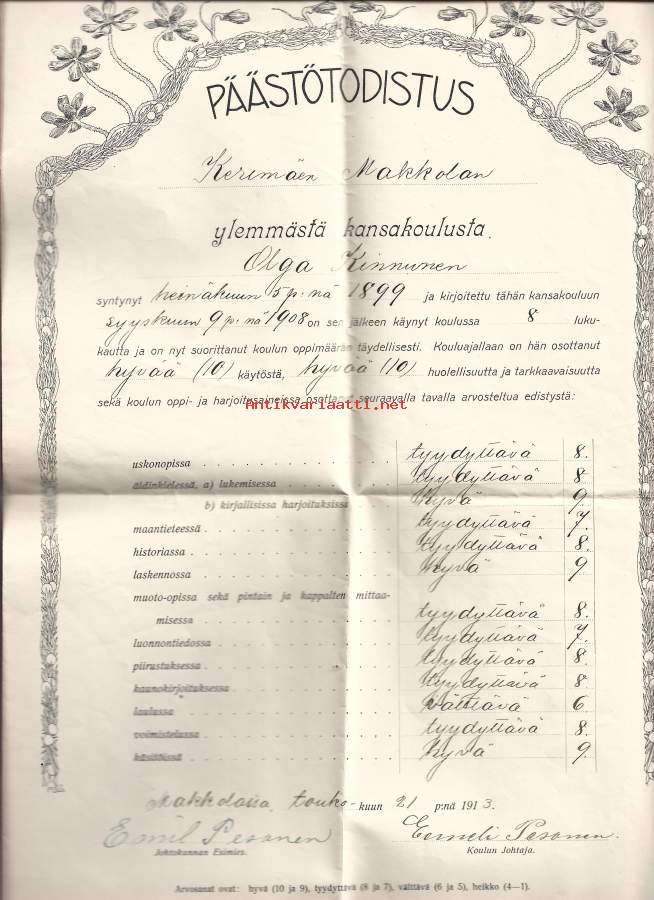 PÄÄSTÖTODISTUS
Kerimäen Makkolan
ylemmästä kansakoulusta.
Olga Kinnunen
syntynyt heinäkuun 5 p:nä 1899 ja kirjoitettu tähän kansakouluun
syyskuun 9 p:nä 1908 on sen jälkeen käynyt koulussa 8 luku-
kautta ja on nyt suorittanut koulun oppimäärän täydellisesti. Kouluajallaan on hän osottanut
hyvää (10) käytöstä, hyvää (10) huolellisuutta ja tarkkaavaisuutta
sekä koulun oppi- ja harjoitusaineissa osottanut seuraavalla tavalla arvosteltua edistystä:
Antikvariaatti.net
uskonopissa tyydyttävä 8.
äidinkielessä, a) lukemisessa tyydyttävä 8
b) kirjallisissa harjoituksissa hyvä 9.
maantieteessä tyydyttävä 7.
historiassa tyydyttävä 8.
laskennossa hyvä 9
muoto-opissa sekä pintain ja kappalten mittaa-
misessa tyydyttävä 8.
luonnontiedossa tyydyttävä 7.
piirustuksessa tyydyttävä 8
kaunokirjoituksessa tyydyttävä 8
laulussa välttävä 6
voimistelussa tyydyttävä 8.
käsitöissä hyvä 9.
Makkolassa, touko-kuun 21 p:nä 1913.
Eemil Pesonen Eemeli Pesonen.
Johtokunnan Esimies. Koulun Johtaja.
Arvosanat ovat: hyvä (10 ja 9), tyydyttävä (8 ja 7), välttävä (6 ja 5), heikko (4—1).